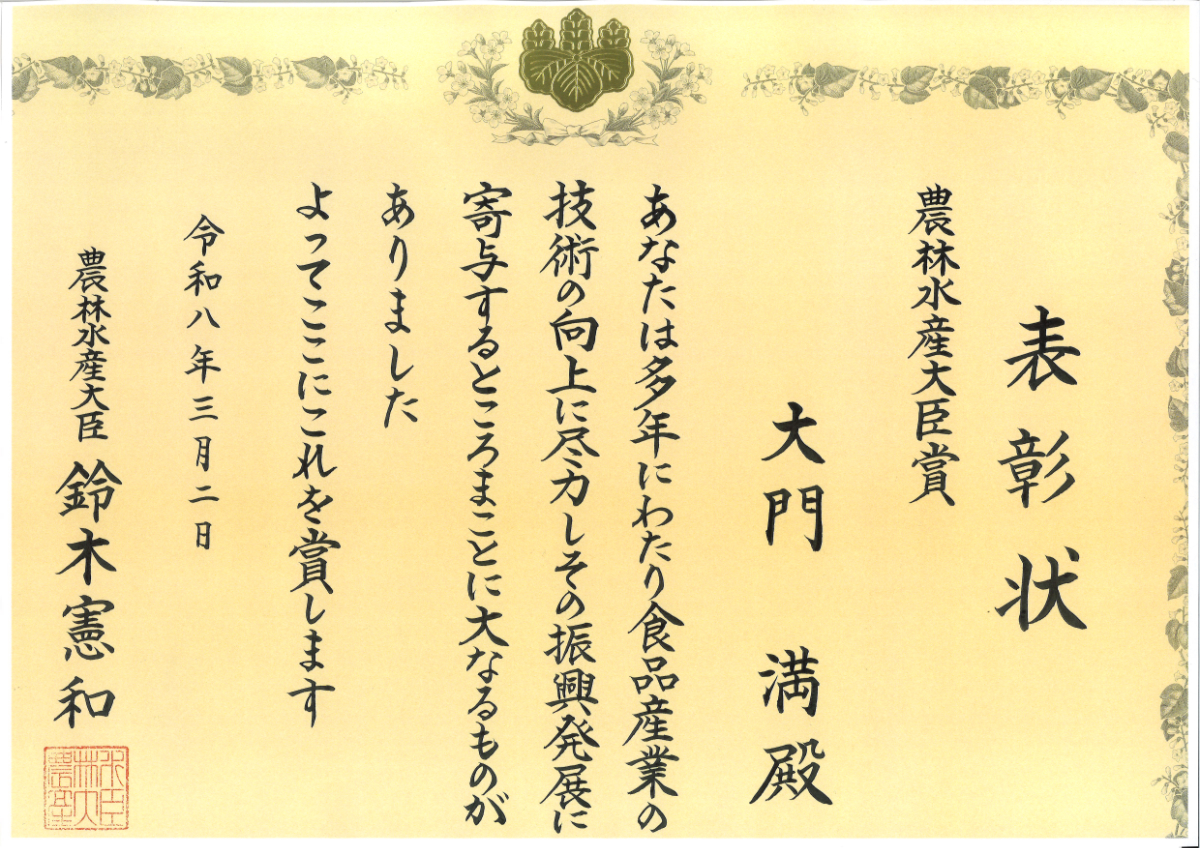 表彰状
農林水産大臣賞
大門 満殿
あなたは多年にわたり食品産業の
技術の向上に尽力しその振興発展に
寄与するところまことに大なるものが
ありました
よってここにこれを賞します
令和八年三月二日
農林水産大臣 鈴木憲和